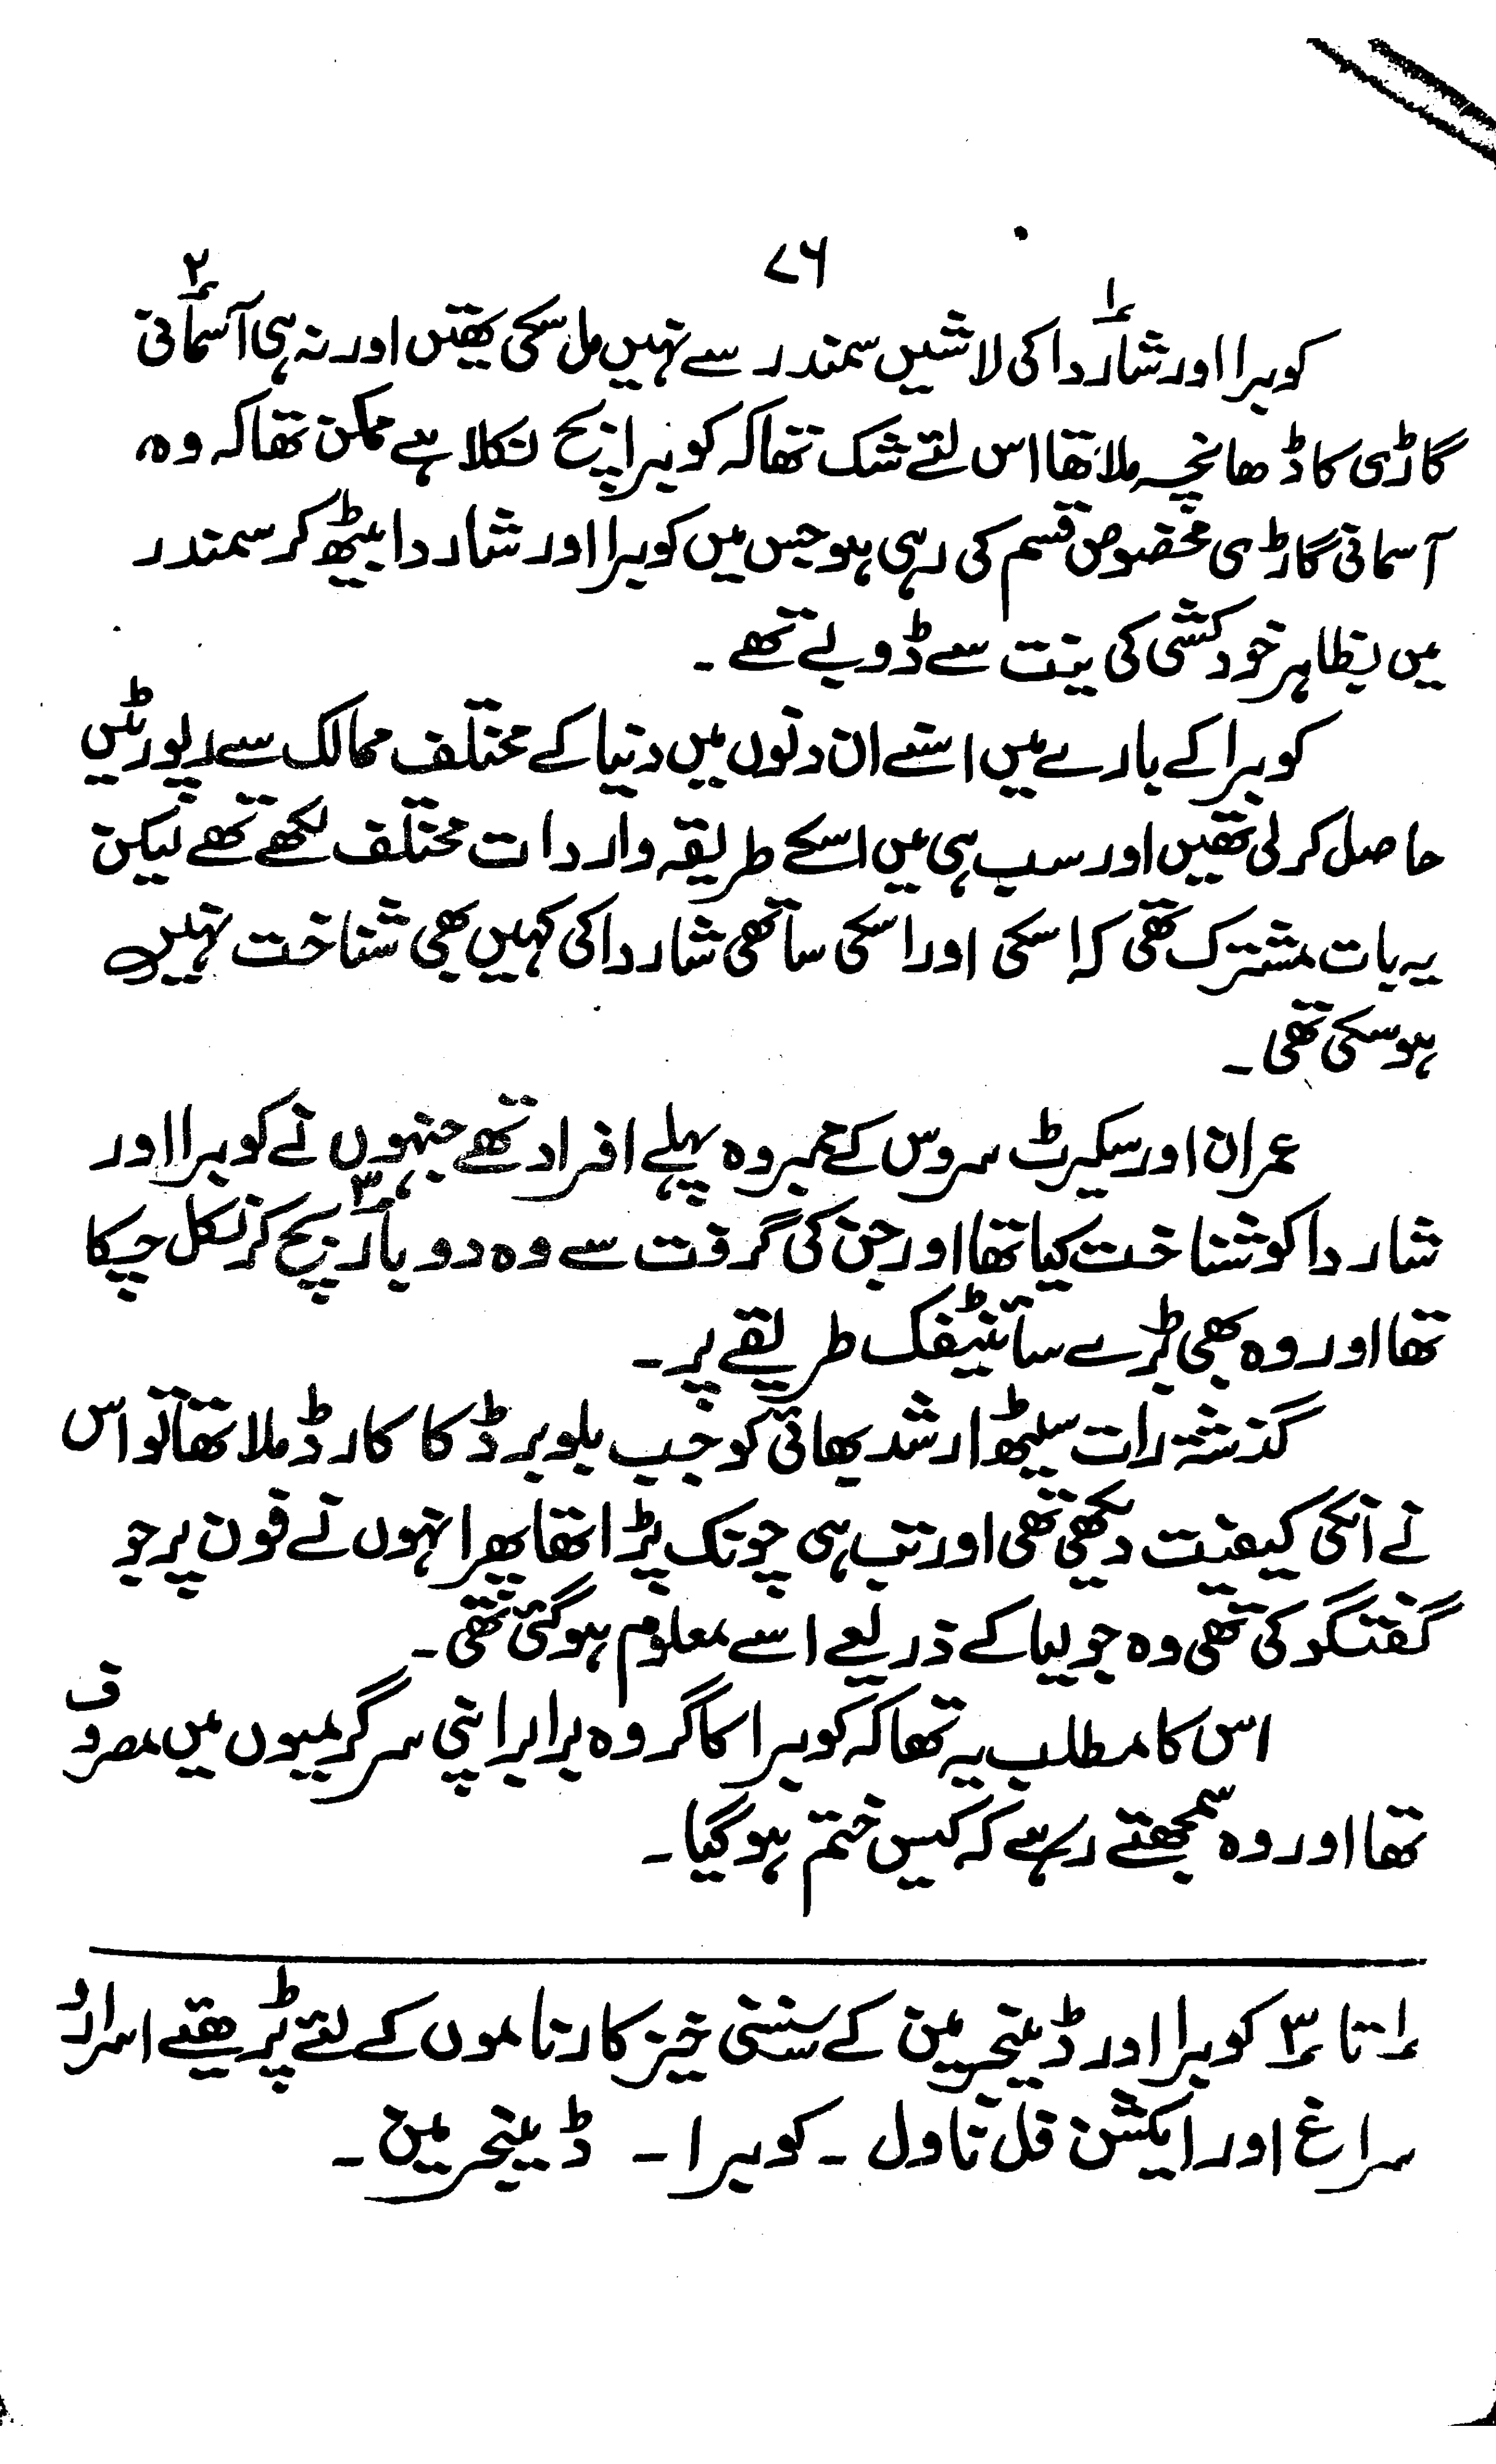 ۷۶
کوبرا اور شاردا۱ کی لاشیں سمندر سے نہیں مل سکی تھیں اور نہ ہی آسمانی۲
گاڑی کا ڈھانچہ ملا تھا اس لئے شک تھا کہ کوبرا بچ نکلا ہے ممکن تھا کہ وہ
آسمانی گاڑی مخصوص قسم کی رہی ہو جس میں کوبرا اور شاردا بیٹھ کر سمندر
میں بظاہر خودکشی کی نیت سے ڈوبے تھے ۔
کوبرا کے بارے میں اسنے ان دنوں میں دنیا کے مختلف ممالک سے رپورٹیں
حاصل کر لی تھیں اور سب ہی میں اسکے طریقہ واردات مختلف لکھے تھے لیکن
یہ بات مشترک تھی کہ اسکی اور اسکی ساتھی شاردا کی کہیں بھی شناخت نہیں
ہو سکی تھی ۔
عمران اور سیکرٹ سروس کے ممبر وہ پہلے افراد تھے جنہوں نے کوبرا اور
شاردا کو شناخت کیا تھا اور جن کی گرفت سے وہ دو بار۳ بچ کر نکل چکا
تھا اور وہ بھی بڑے سائنٹیفک طریقے پر ۔
گذشتہ رات سیٹھ ارشد بھائی کو جب بلو برڈ کا کارڈ ملا تھا تو اس
نے انکی کیفیت دیکھی تھی اور تب ہی چونک پڑا تھا پھر انہوں نے فون پر جو
گفتگو کی تھی وہ جولیا کے ذریعے اسے معلوم ہو گئی تھی ۔
اس کا مطلب یہ تھا کہ کوبرا کا گروہ برابر اپنی سرگرمیوں میں مصروف
تھا اور وہ سمجھتے رہے کہ کیس ختم ہو گیا ۔
۱ تا ۳ کوبرا اور ڈینجر مین کے سنسنی خیز کارناموں کے لئے پڑھیئے اسرار و
سراغ اور ایکشن فل ناول ۔ کوبرا ۔ ڈینجر مین ۔